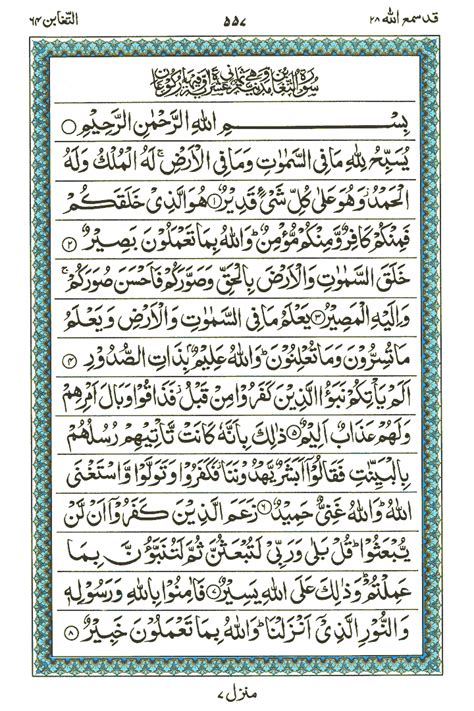 قد سمع الله ٢٨ ٥٥٧ التغابن ٦٤
سُوْرَةُ التَّغَابُنِ مَدَنِيَّةٌ وَّهِيَ ثَمَانِيَ عَشْرَةَ اٰيَةً وَّفِيْهَا رُكُوْعَانِ
بِسْمِ اللهِ الرَّحْمٰنِ الرَّحِيْمِ ○
يُسَبِّحُ لِلّٰهِ مَا فِي السَّمٰوٰتِ وَمَا فِي الْاَرْضِ ۚ لَهُ الْمُلْكُ وَلَهُ
الْحَمْدُ ؗ وَهُوَ عَلٰى كُلِّ شَيْءٍ قَدِيْرٌ ۝١ هُوَ الَّذِيْ خَلَقَكُمْ
فَمِنْكُمْ كَافِرٌ وَّمِنْكُمْ مُّؤْمِنٌ ؕ وَاللهُ بِمَا تَعْمَلُوْنَ بَصِيْرٌ ۝٢
خَلَقَ السَّمٰوٰتِ وَالْاَرْضَ بِالْحَقِّ وَصَوَّرَكُمْ فَاَحْسَنَ صُوَرَكُمْ ۚ
وَاِلَيْهِ الْمَصِيْرُ ۝٣ يَعْلَمُ مَا فِي السَّمٰوٰتِ وَالْاَرْضِ وَيَعْلَمُ
مَا تُسِرُّوْنَ وَمَا تُعْلِنُوْنَ ؕ وَاللهُ عَلِيْمٌ ۢ بِذَاتِ الصُّدُوْرِ ۝٤
اَلَمْ يَاْتِكُمْ نَبَؤُا الَّذِيْنَ كَفَرُوْا مِنْ قَبْلُ ؗ فَذَاقُوْا وَبَالَ اَمْرِهِمْ
وَلَهُمْ عَذَابٌ اَلِيْمٌ ۝٥ ذٰلِكَ بِاَنَّهٗ كَانَتْ تَّاْتِيْهِمْ رُسُلُهُمْ
بِالْبَيِّنٰتِ فَقَالُوْۤا اَبَشَرٌ يَّهْدُوْنَنَا ؗ فَكَفَرُوْا وَتَوَلَّوْا وَّاسْتَغْنَى
اللهُ ؕ وَاللهُ غَنِيٌّ حَمِيْدٌ ۝٦ زَعَمَ الَّذِيْنَ كَفَرُوْۤا اَنْ لَّنْ
يُّبْعَثُوْا ؕ قُلْ بَلٰى وَرَبِّيْ لَتُبْعَثُنَّ ثُمَّ لَتُنَبَّؤُنَّ بِمَا
عَمِلْتُمْ ؕ وَذٰلِكَ عَلَى اللهِ يَسِيْرٌ ۝٧ فَاٰمِنُوْا بِاللهِ وَرَسُوْلِهٖ
وَالنُّوْرِ الَّذِيْۤ اَنْزَلْنَا ؕ وَاللهُ بِمَا تَعْمَلُوْنَ خَبِيْرٌ ۝٨
منزل ٧